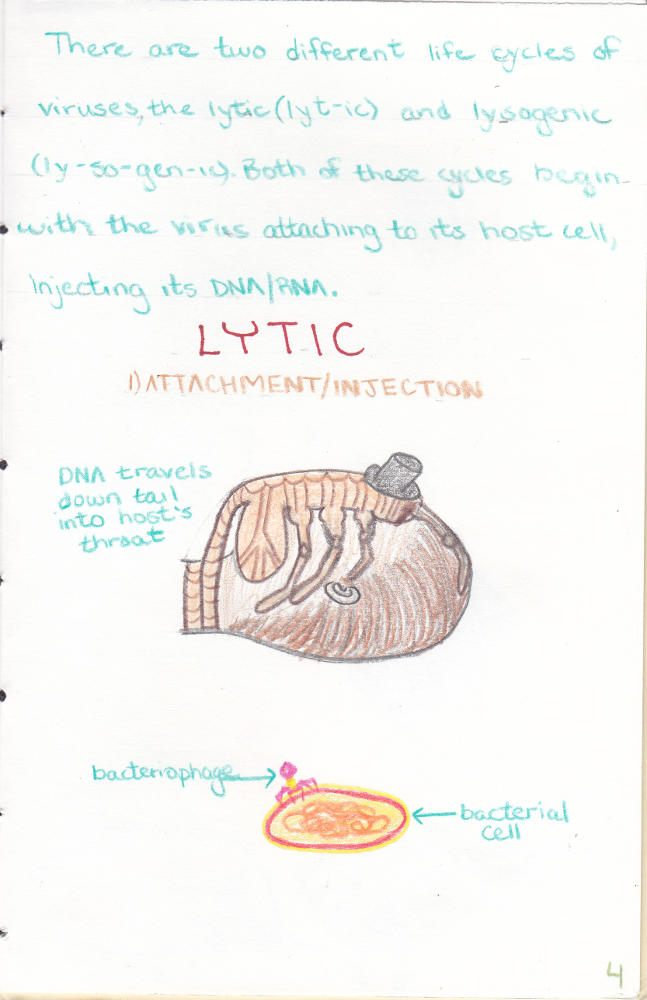 There are two different life cycles of
viruses, the lytic (lyt-ic) and lysogenic
(ly-so-gen-ic). Both of these cycles begin
with the virus attaching to its host cell,
injecting its DNA/RNA.
LYTIC
1) ATTACHMENT/INJECTION
DNA travels
down tail
into host's
throat
bacteriophage
bacterial
cell
4